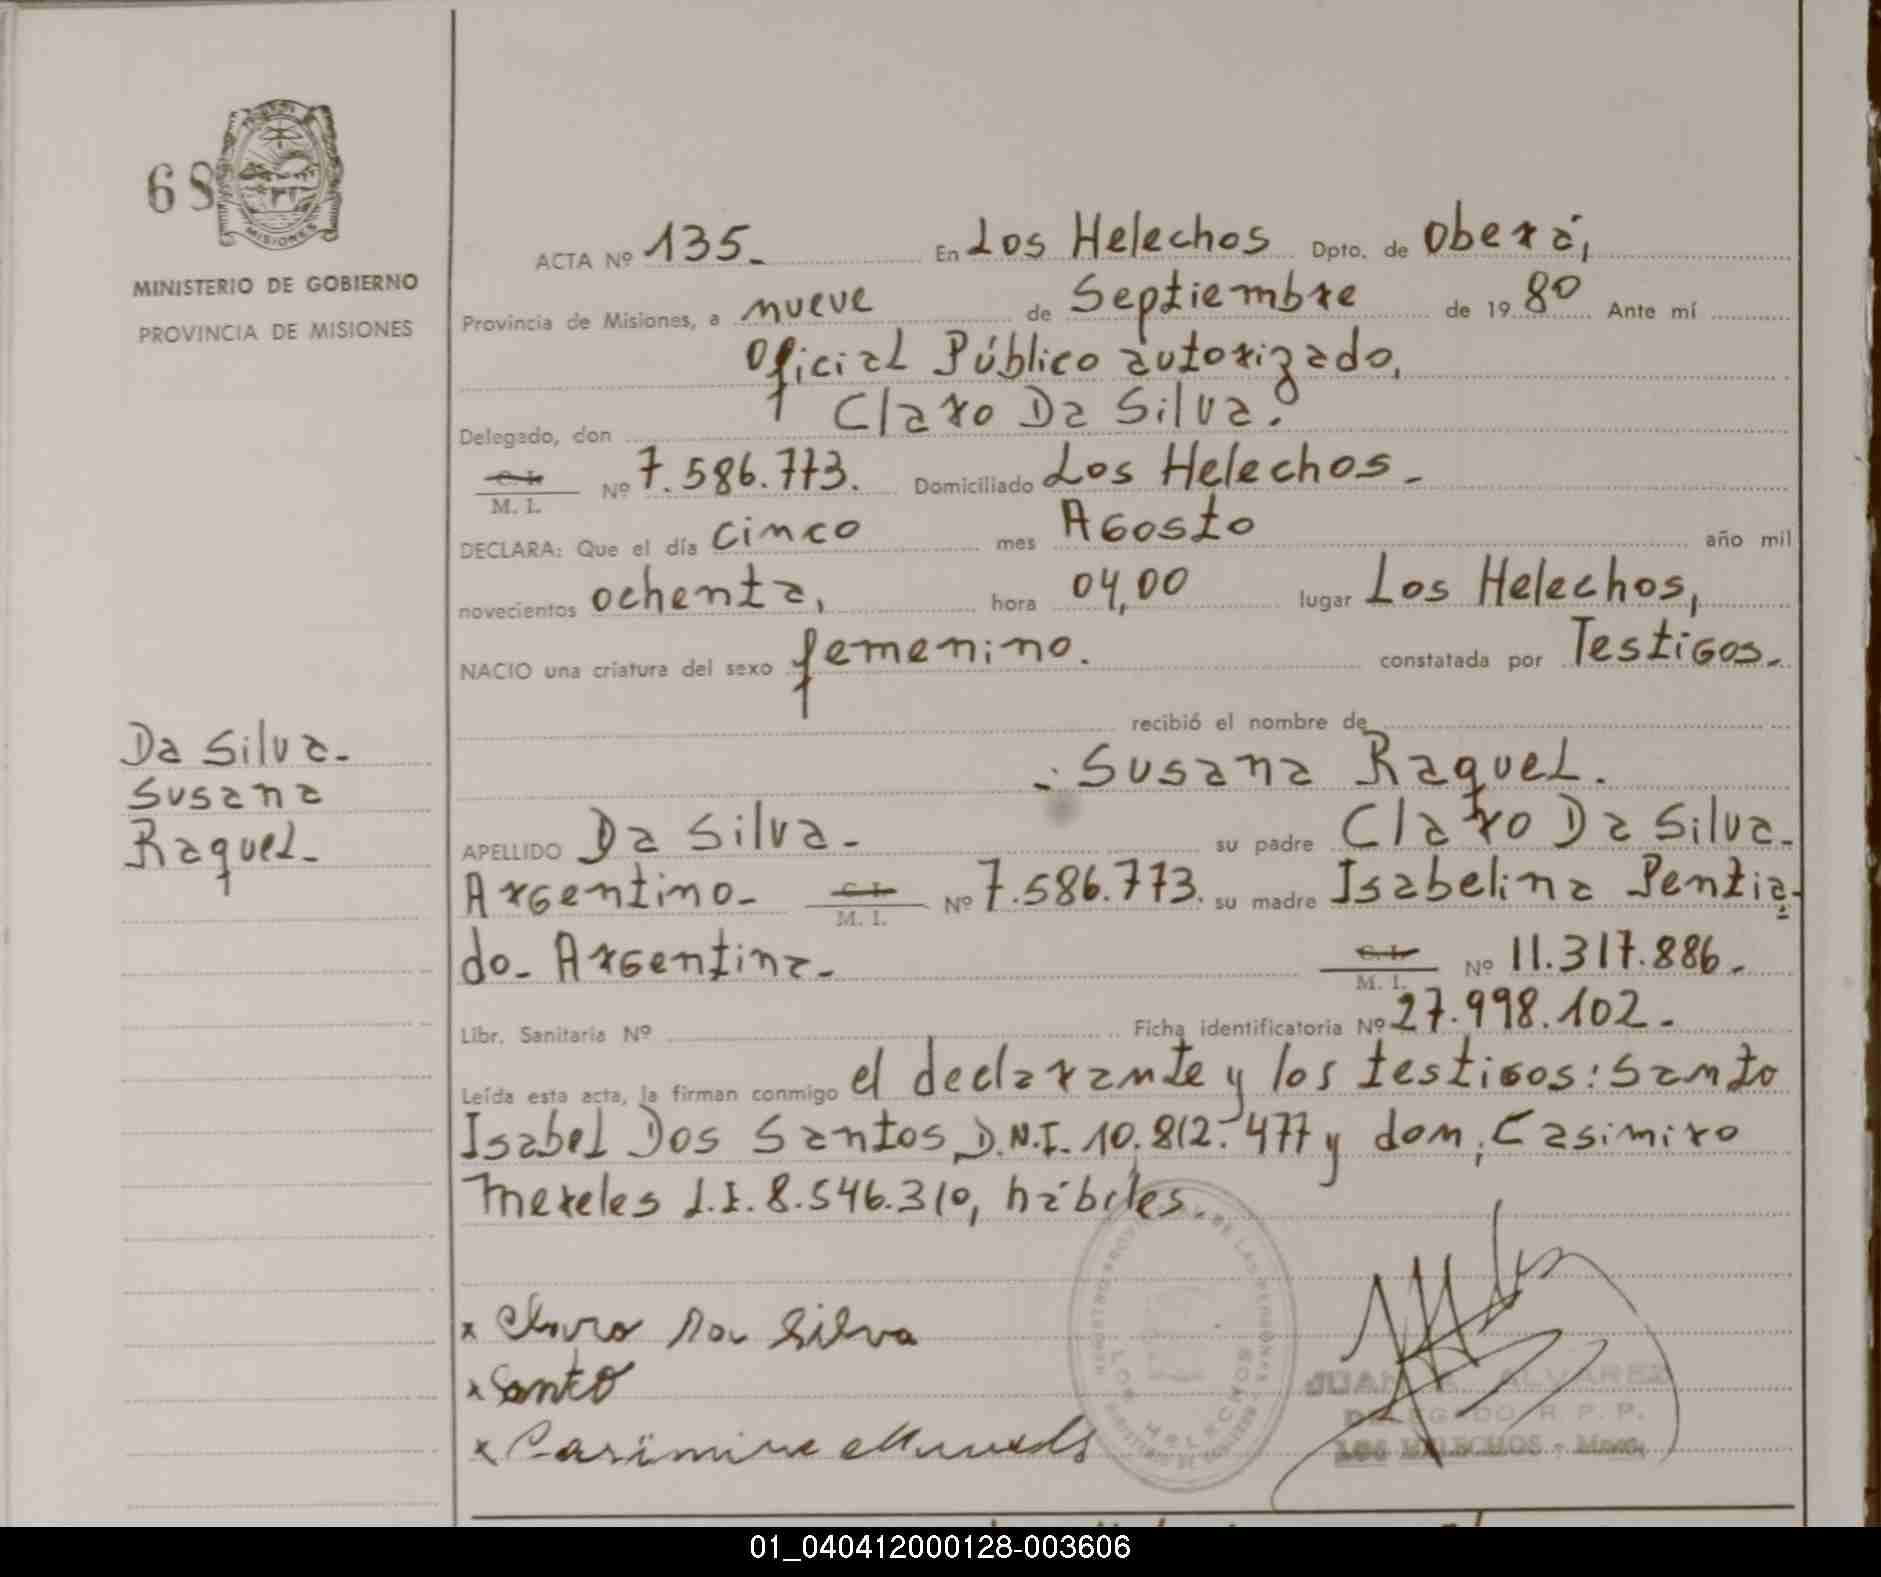 68
MISIONES
MINISTERIO DE GOBIERNO
PROVINCIA DE MISIONES
Da Silva-
Susana
Raquel-
ACTA Nº 135- En Los Helechos Dpto. de Oberá,
Provincia de Misiones, a nueve de Septiembre de 19 80 Ante mí
Oficial Público autorizado,
Delegado, don Claro Da Silva.
C. I.
M. I. Nº 7.586.773. Domiciliado Los Helechos-
DECLARA: Que el día cinco mes Agosto año mil
novecientos ochenta, hora 04,00 lugar Los Helechos,
NACIO una criatura del sexo femenino. constatada por Testigos-
recibió el nombre de
-: Susana Raquel.
APELLIDO Da Silva- su padre Claro Da Silva-
Argentino- C. I. M. I. Nº 7.586.773. su madre Isabelina Pentia-
do- Argentina- C. I. M. I. Nº 11.317.886-
Libr. Sanitaria Nº Ficha identificatoria Nº 27.998.102-
Leída esta acta, la firman conmigo el declarante y los testigos: Santo
Isabel Dos Santos D.N.I. 10.812.477 y don, Casimiro
Mereles L.E. 8.546.310, hábiles.
x Claro Da Silva
x Santo
x Casimiro Mereles
LOS HELECHOS
JUAN ALVAREZ
DELEGADO R. P. P.
LOS HELECHOS - Mnes.
01_040412000128-003606